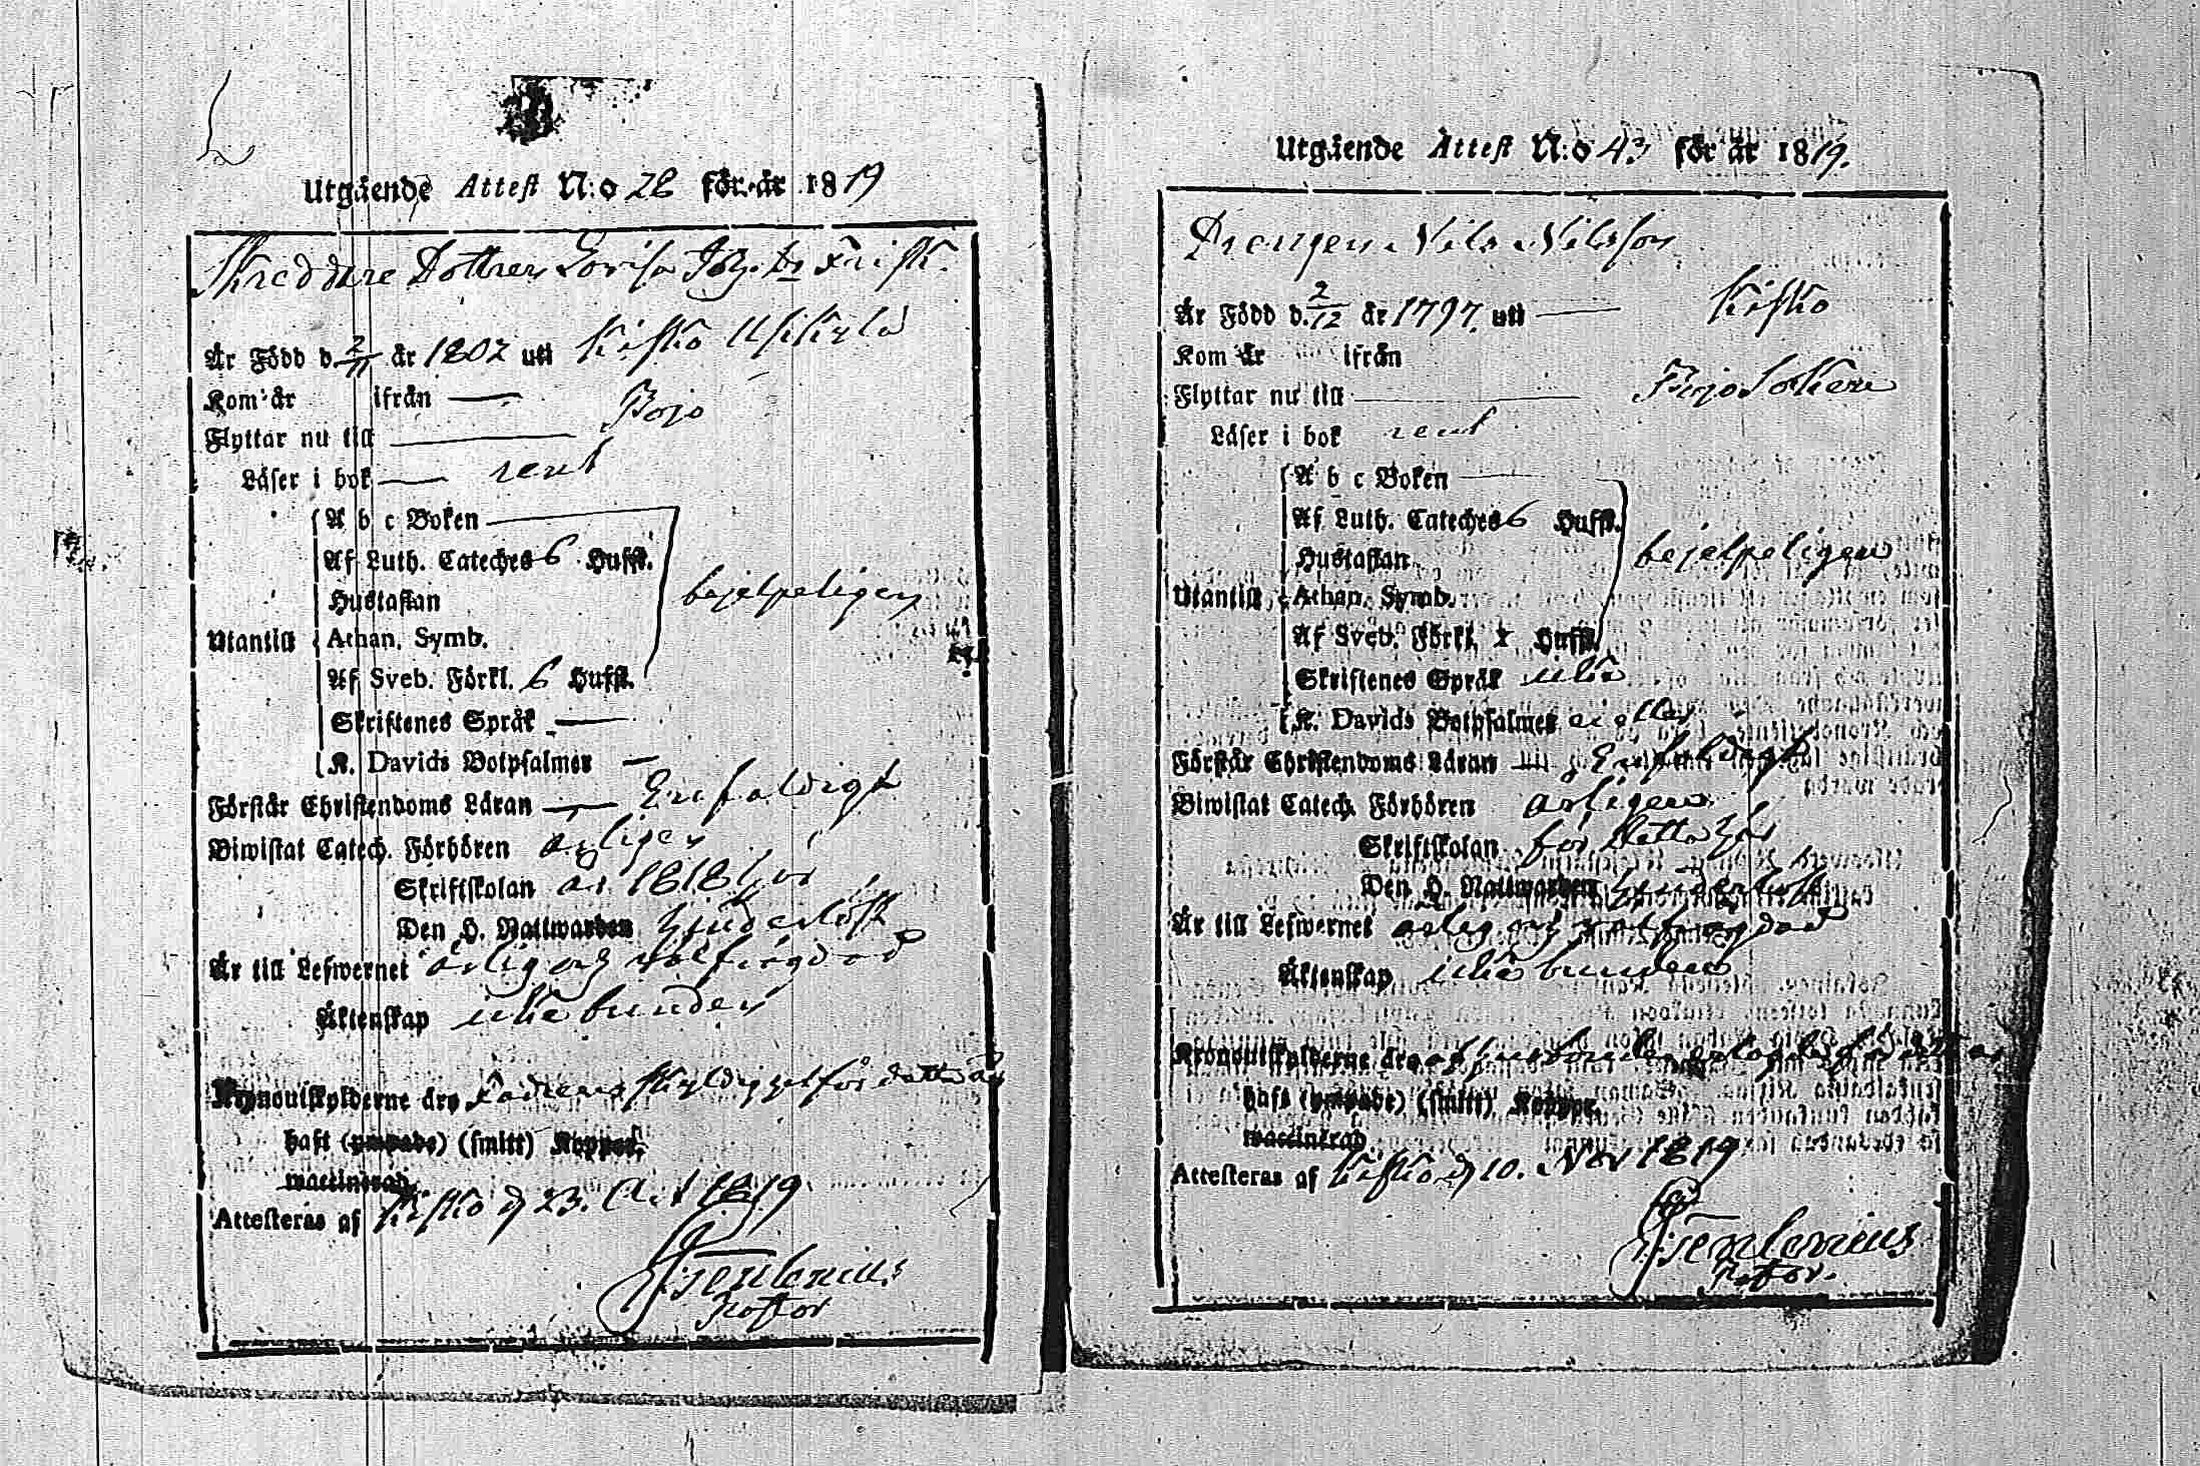 Utgående Attest N:o 28 för år 1819
Skreddare Dottren Lovisa Joh. Dr Frisk.
Är Född d. 2/11 år 1802 uti Kisko Uskila
Kom år ifrån —
Flyttar nu till — Bojo
Läser i bok — rent
A b c Boken
Af Luth. Cateches 6 Hufst.
bejelpeligen
Hustaflan
Utantill Athan. Symb.
Af Sveb. Förkl. 6 Hufst.
Skriftenes Språk —
K. Davids Botpsalmer —
Förstår Christendoms Läran — Enfaldigt
Biwistat Catech. Förhören årligen
Skriftskolan år 1818 här
Den H. Nattwarden hinderlöst
Är till Lefwernet ärlig och välfrägdad
Äktenskap icke bunden
Kronoutskylderne dro Fadrens skyldighet för detta år
haft (ympade) (smitt) Koppor.
waccinerad
Attesteras af Kisko d 23. Oct 1819
Rostor
Utgående Attest N:o 43 för år 1819.
Drengen Nils Nilsson
Är Född d. 2/12 år 1797. uti — Kisko
Kom år ifrån
Flyttar nu till — Bojo Sokn
Läser i bok rent
A b c Boken
Af Luth. Cateches 6 Hufst.
Hustaflan bejelpeligen
Utantill Athan. Symb.
Af Sveb. Förkl. Hufst.
Skriftenes Språk icke
K. Davids Botpsalmer eij eller
Förstår Christendoms Läran — Enfaldigt
Biwistat Catech. Förhören årligen
Skriftskolan för detta här
Den H. Nattwarden hinderlöst
Är till Lefwernet ärlig och välfrägdad
Äktenskap icke bunden
Kronoutskylderne dro af husbonden
haft (ympade) (smitt) Koppor.
waccinerad
Attesteras af Kisko d 10. Nov 1819